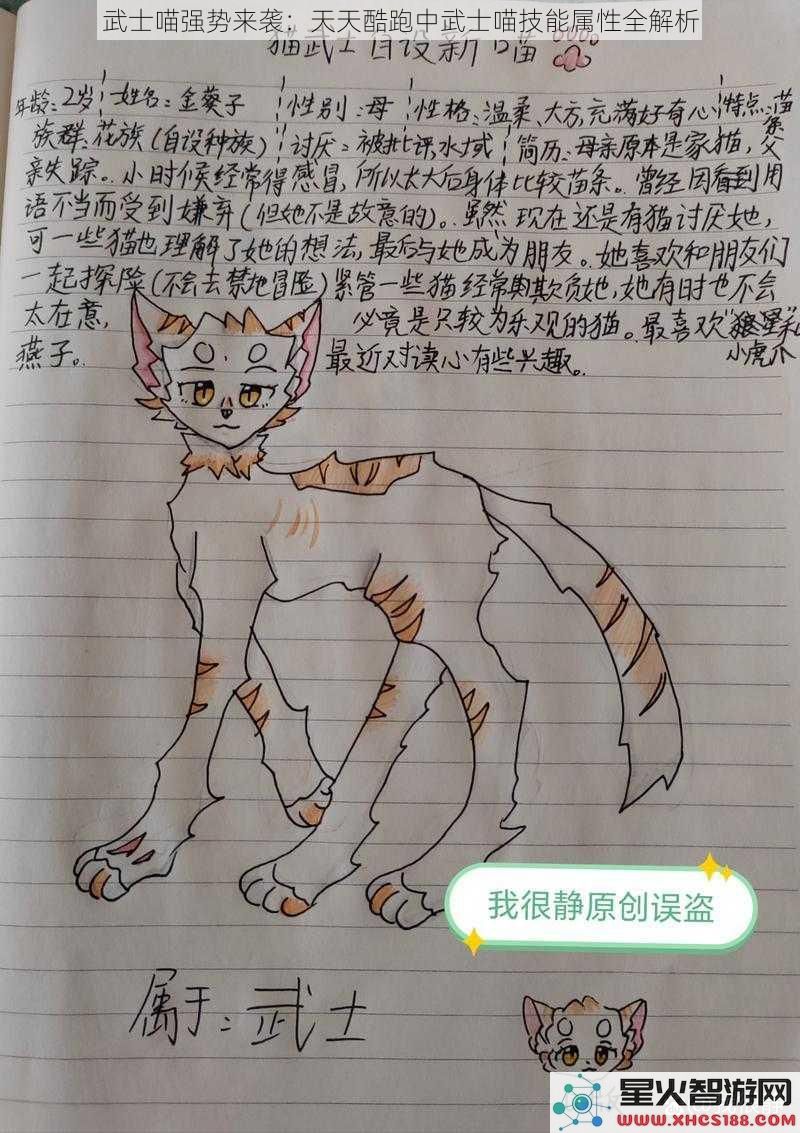 武士喵强势来袭：天天酷跑中武士喵技能属性全解析
猫武士自设新喵
年龄：2岁 姓名：金葵子 性别：母 性格：温柔、大方，充满好奇心 特点：苗条
族群：花族（自设种族） 讨厌：被批评，水域 简历：母亲原本是家猫，父
亲失踪。小时候经常得感冒，所以太大后身体比较苗条。曾经因看到用
语不当而受到嫌弃（但她不是故意的）。虽然现在还是有猫讨厌她，
可一些猫也理解了她的想法，最后与她成为朋友。她喜欢和朋友们
一起探险（不会去禁地冒险）紧管一些猫经常欺负她，她有时也不会
太在意， 必竟是只较为乐观的猫。最喜欢
燕子。 最近对读心有些兴趣。 小虎爪
我很静原创误盗
属于：武士
星火智游网
www.xhcs188.com